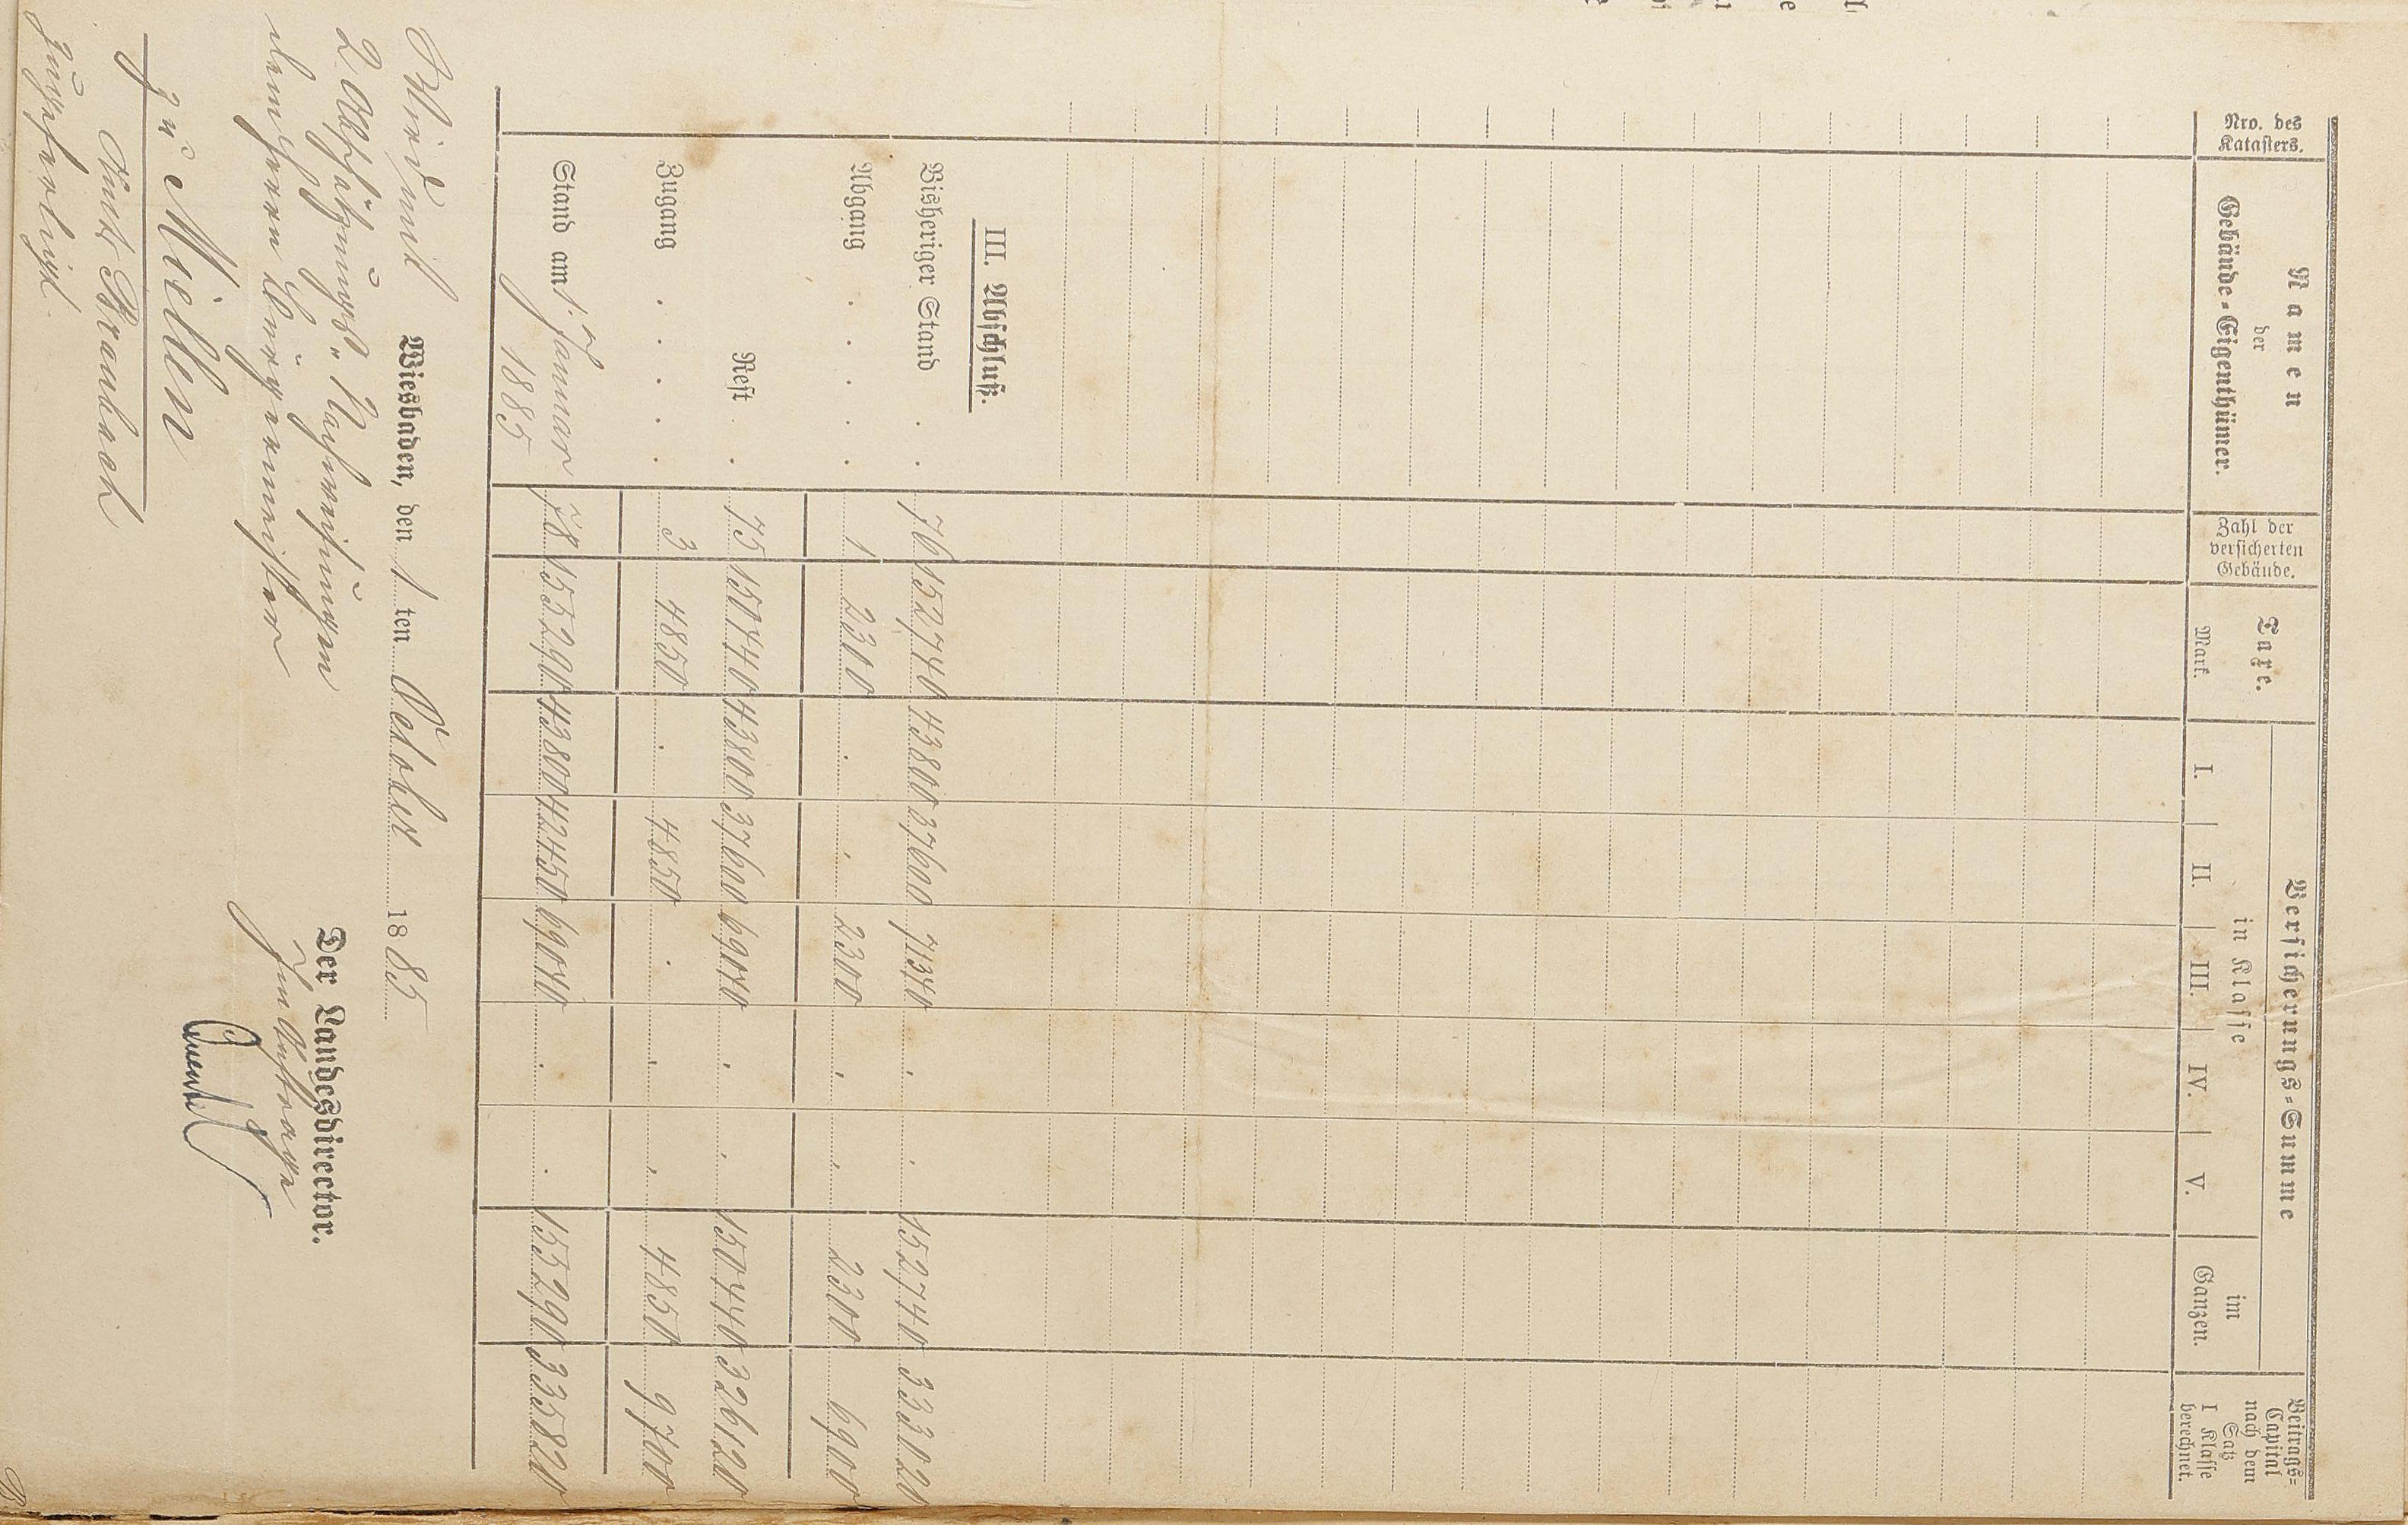 Nro. des
Katasters.
Namen
der
Gebäude-Eigenthümer.
Zahl der
versicherten
Gebäude.
Taxe.
Mark.
Versicherungs-Summe
in Klasse
I. II. III. IV. V.
im
Ganzen.
Beitrags-
Capital
nach dem
Satz
I Klasse
berechnet
III. Abschluß.
Bisheriger Stand . . 76 152740 43800 37600 71340 . . 152740 333020
Abgang . . . . . 1 2300 . . 2300 . . 2300 6900
Rest . . 75 150440 43800 37600 69040 . . 150440 326120
Zugang . . . . . 3 4850 . 4850 . . . 4850 9700
Stand am 1. Januar
1885 78 155290 43800 42450 69040 . . 155290 335820
Wiesbaden, den 1 ten October 1885
Hierbei
2 Abschätzungs-Nachweisungen
Der Landesdirector.
Im Auftrage
dem Herrn Bürgermeister
zu Miellen
Amts Braubach